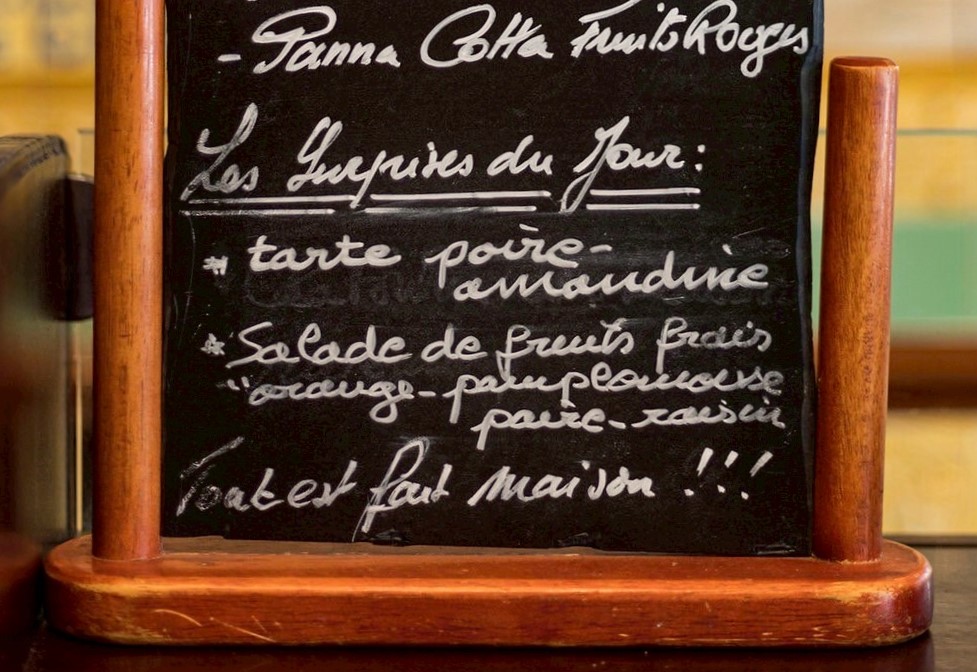 - Panna Cotta Fruits Rouges
Les Surprises du Jour:
* tarte poire-
amandine
* Salade de fruits frais
"orange-pamplemousse
poire-raisin
Tout est fait maison !!!